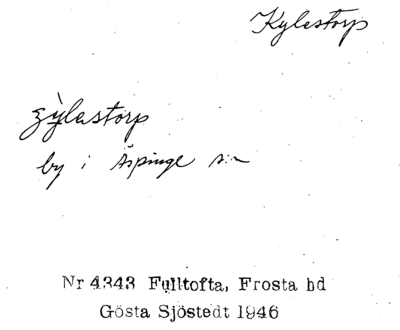 Kylestorp
zỳlastorp
by i Äspinge s:n
Nr 4343 Fulltofta, Frosta hd
Gösta Sjöstedt 1946